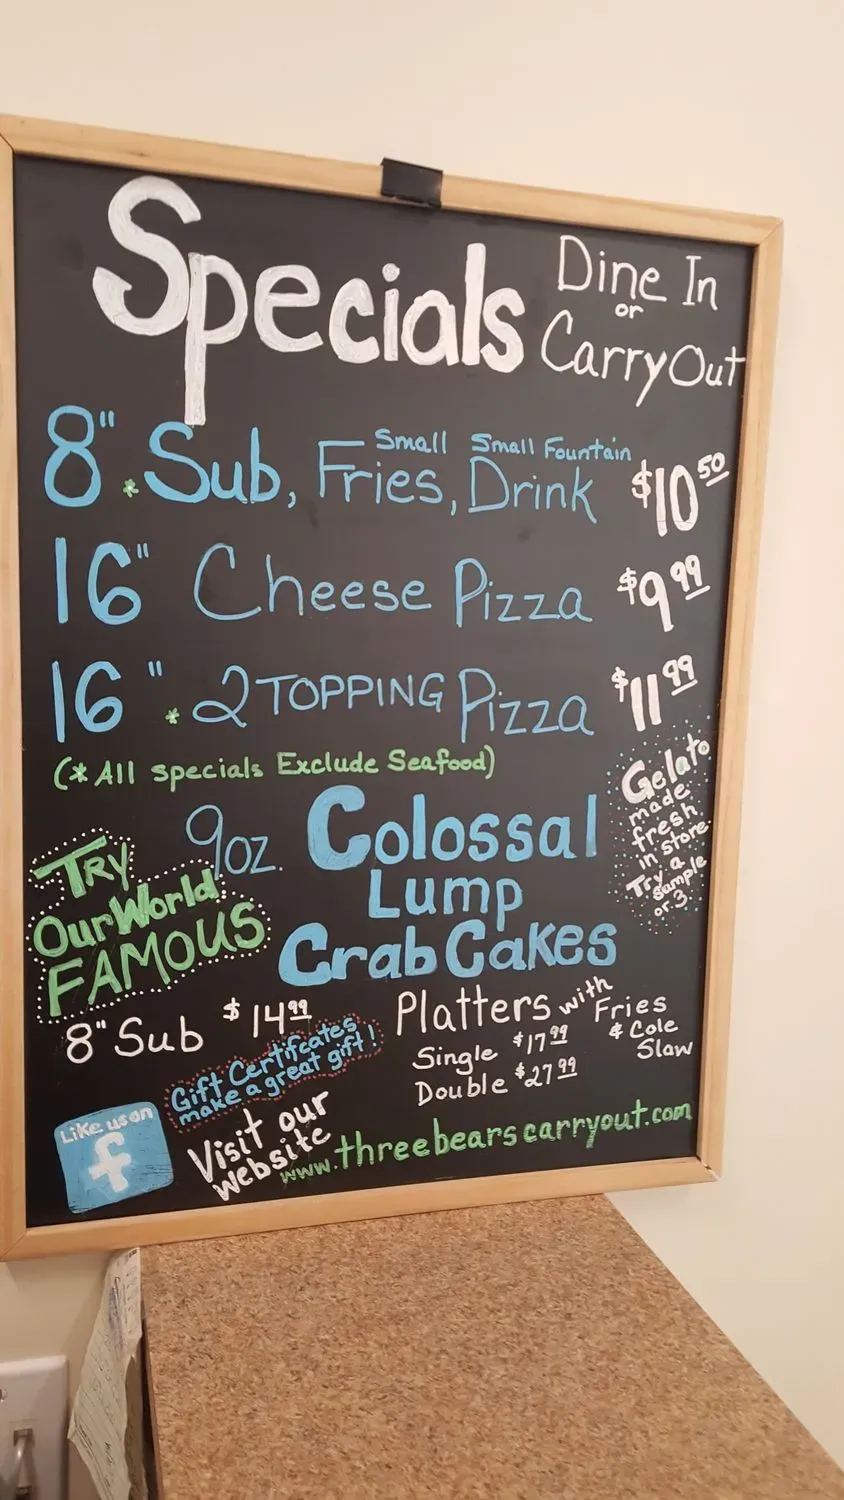 Specials
Dine In
or
Carry Out
8" *Sub, Small Fries, Small Fountain Drink $10 50
16" Cheese Pizza $9 99
16" *2 TOPPING Pizza $11 99
(* All specials Exclude Seafood)
Gelato
made
fresh
in store.
Try a
sample
or 3.
TRY
Our World
FAMOUS
9oz. Colossal
Lump
Crab Cakes
8" Sub $14 99
Platters with Fries
& Cole
Slaw
Single $17 99
Double $27 99
Gift Certifcates
make a great gift!
Like us on
f
Visit our
website
www.threebearscarryout.com